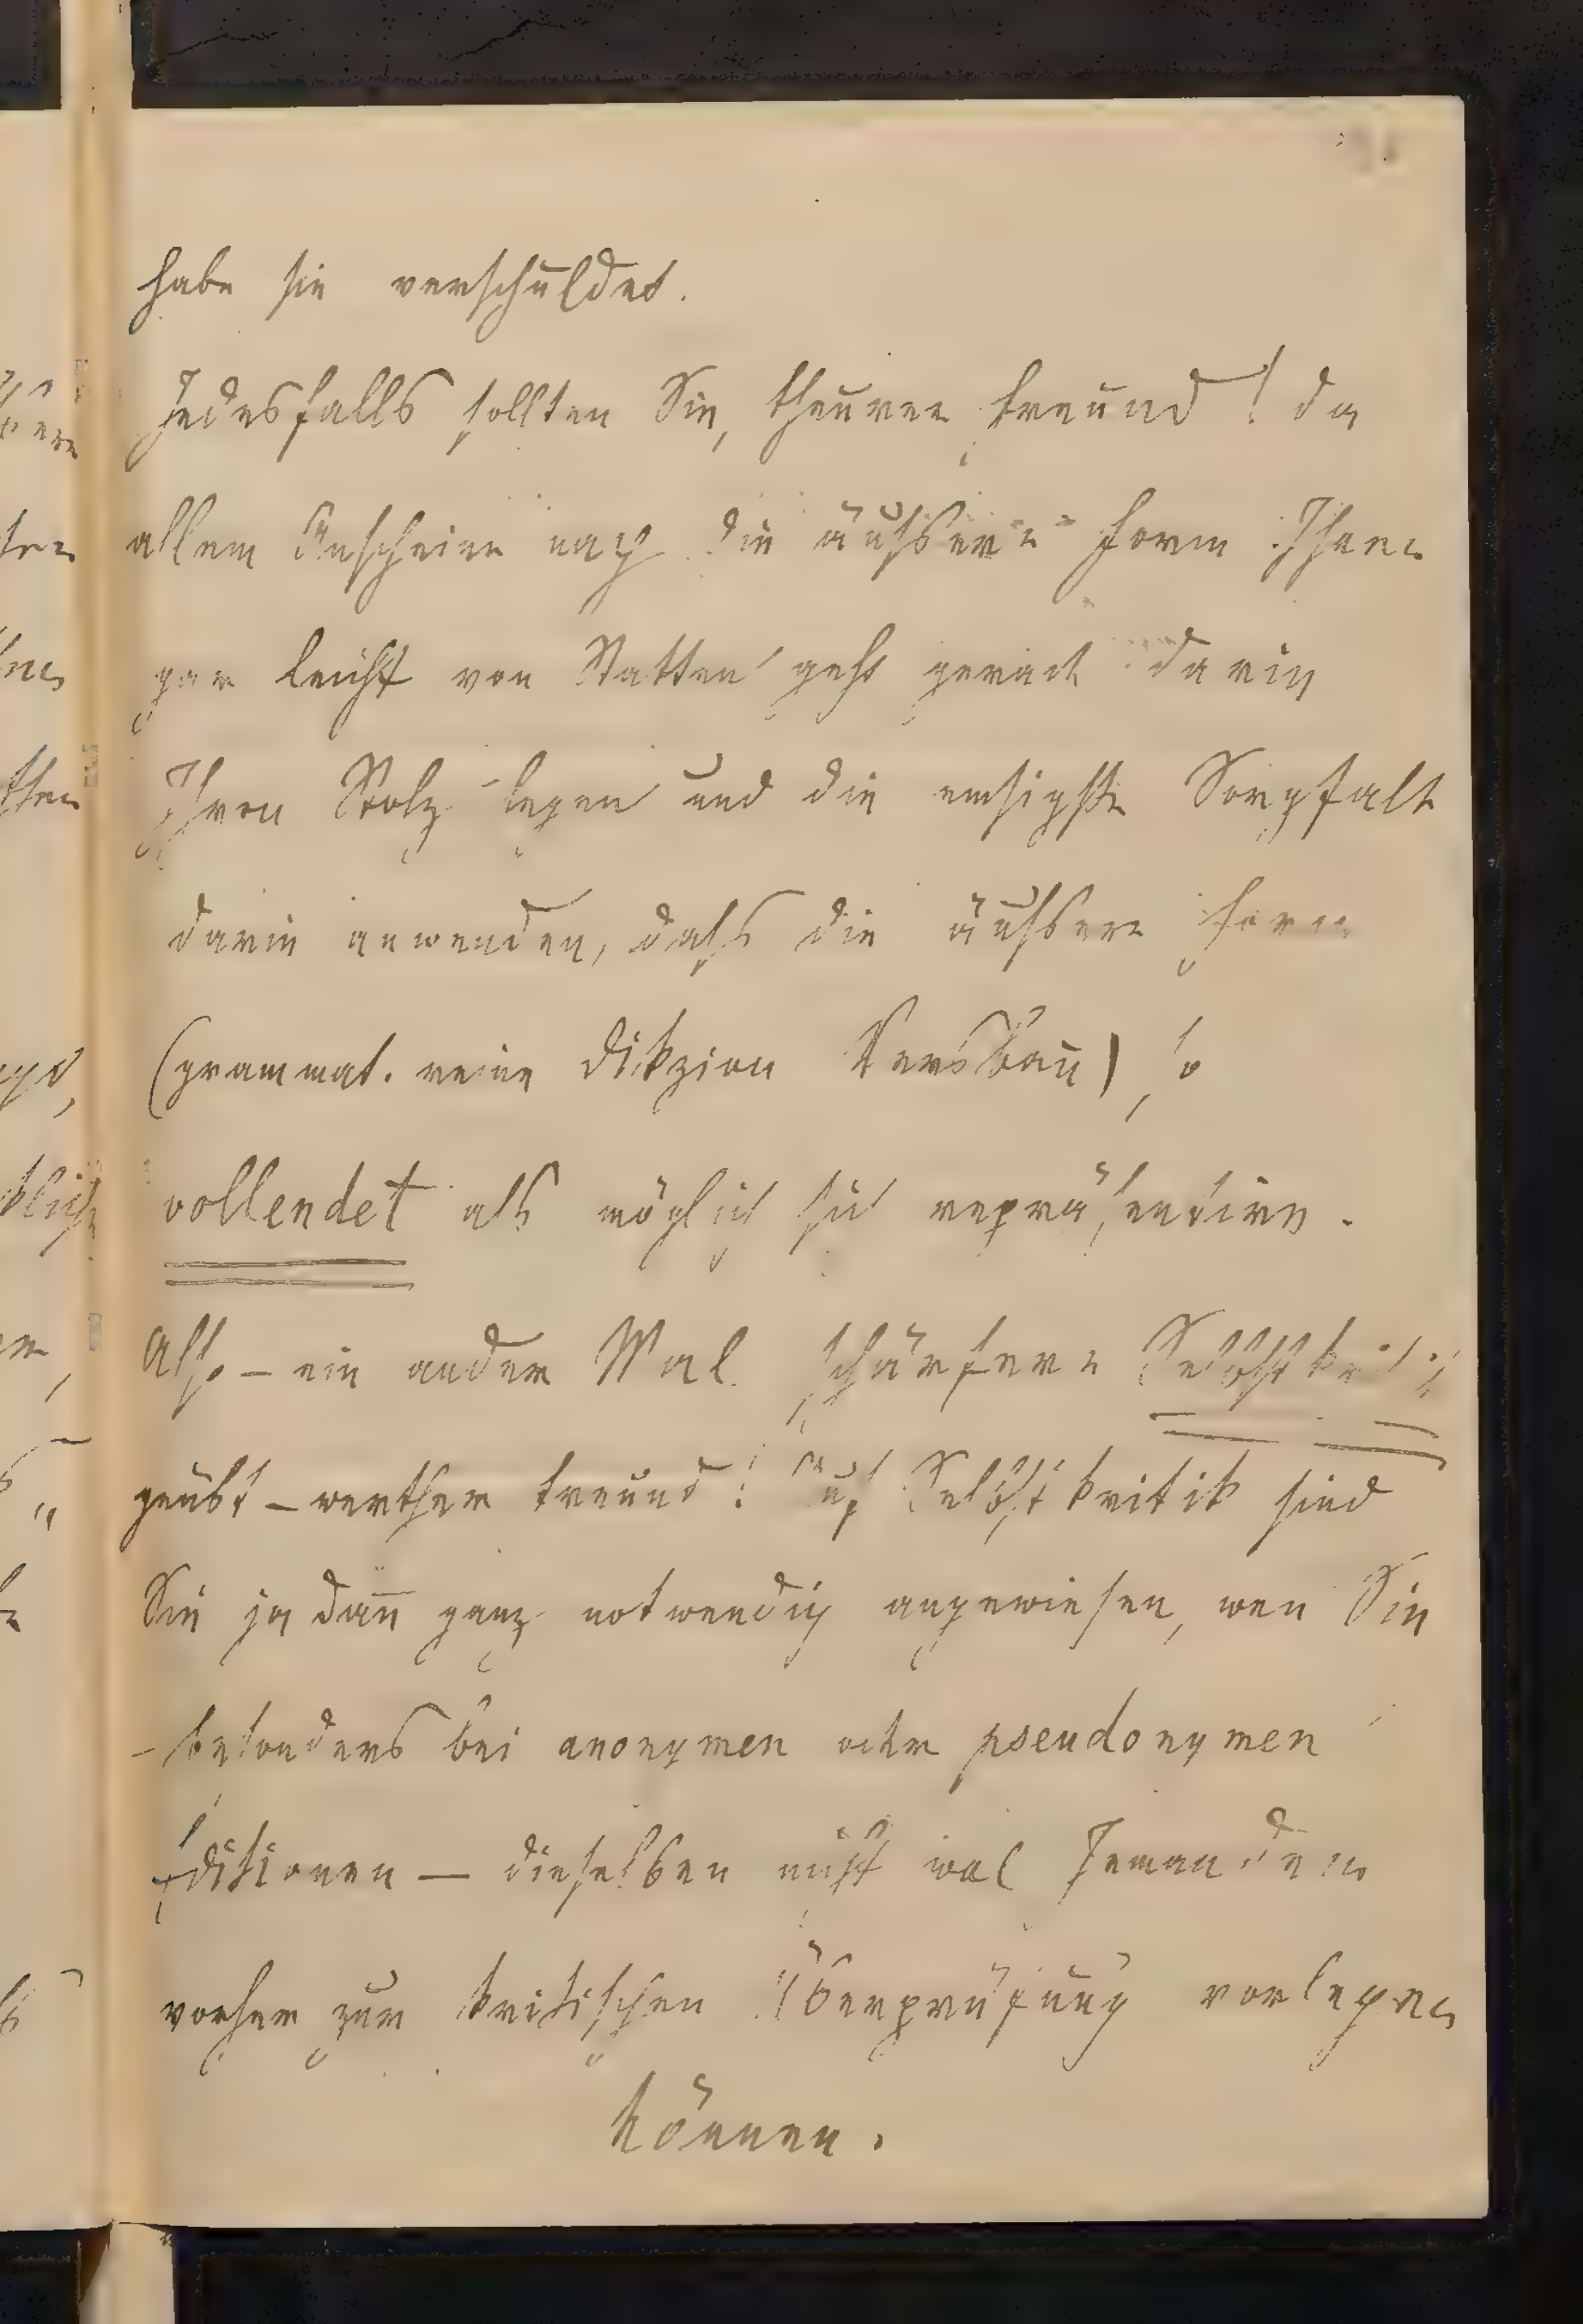 habe sie verschuldet.
Jedesfalls sollten Sie, theurer Freund! da
allem Anscheine nach die äußere Form Ihnen
gar leicht von Statten geht gerade darin
Ihren Stolz legen und die emsigste Sorgfalt
darin anwenden, daß die äußere Form
(grammat. reine Dikzion Versbau) so
vollendet als möglich sich repräsentire.
Also – ein ander Mal schärfere Selbstkritik
geübt – werther Freund! Auf Selbstkritik sind
Sie ja dann ganz notwendig angewiesen, wen Sie
– besonders bei anonymen oder pseudonymen
Editionen – dieselben nicht wol Jemanden
vorher zur kritischen Überprüfung vorlegen
können.